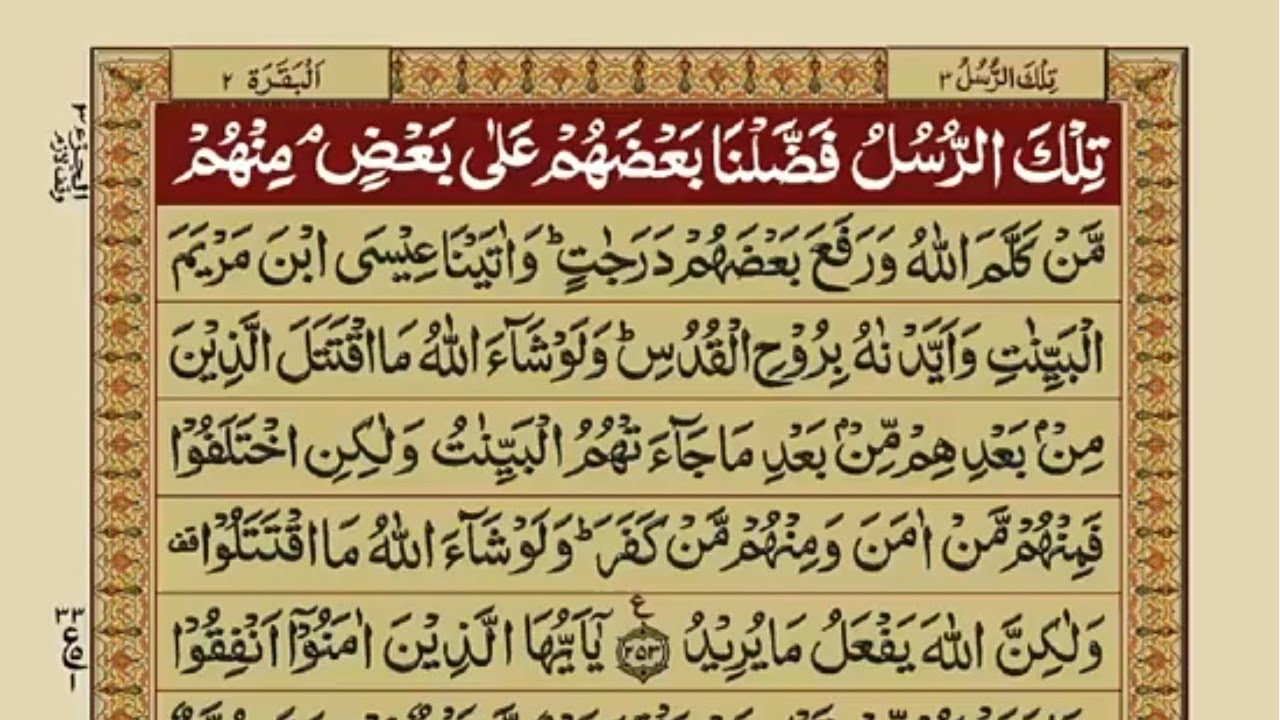 تِلْكَ الرُّسُلُ ٣
اَلْبَقَرَة ٢
تِلْكَ الرُّسُلُ فَضَّلْنَا بَعْضَهُمْ عَلٰى بَعْضٍ ۘ مِنْهُمْ
مَّنْ كَلَّمَ اللّٰهُ وَرَفَعَ بَعْضَهُمْ دَرَجٰتٍ ؕ وَاٰتَيْنَا عِيْسَى ابْنَ مَرْيَمَ
الْبَيِّنٰتِ وَاَيَّدْنٰهُ بِرُوْحِ الْقُدُسِ ؕ وَلَوْ شَآءَ اللّٰهُ مَا اقْتَتَلَ الَّذِيْنَ
مِنْۢ بَعْدِهِمْ مِّنْۢ بَعْدِ مَا جَآءَتْهُمُ الْبَيِّنٰتُ وَلٰكِنِ اخْتَلَفُوْا
فَمِنْهُمْ مَّنْ اٰمَنَ وَمِنْهُمْ مَّنْ كَفَرَ ؕ وَلَوْ شَآءَ اللّٰهُ مَا اقْتَتَلُوْا قف
وَلٰكِنَّ اللّٰهَ يَفْعَلُ مَا يُرِيْدُ ع ٢٥٣ يٰۤاَيُّهَا الَّذِيْنَ اٰمَنُوْۤا اَنْفِقُوْا